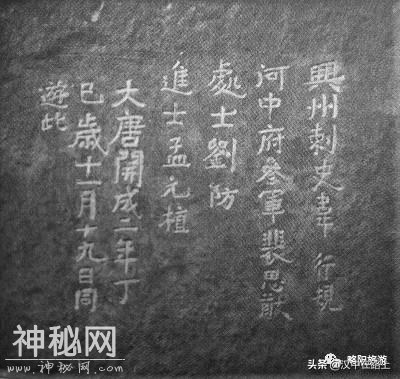 興州刺史韋行規
河中府參軍裴思猷
處士劉防
進士孟元植
大唐開成二年丁
巳歲十一月十九日同
遊此
神秘网
www.shenmiwang.com
略阳旅游
头条@汉中在路上